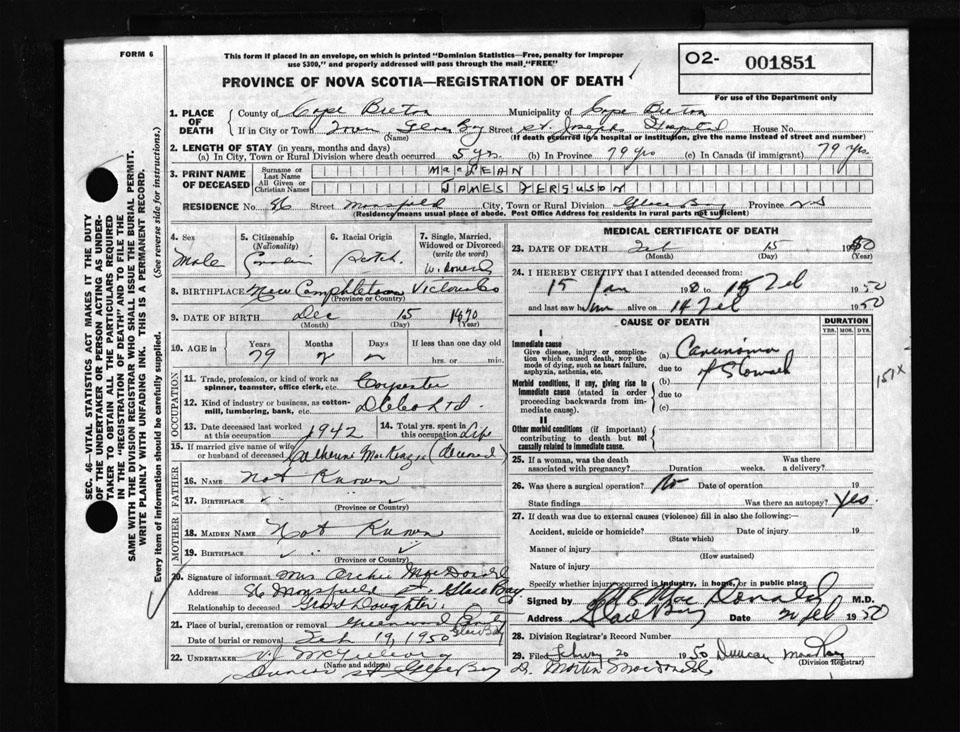 FORM 6
This form if placed in an envelope, on which is printed "Dominion Statistics—Free, penalty for improper
use $300," and properly addressed will pass through the mail, "FREE"
PROVINCE OF NOVA SCOTIA—REGISTRATION OF DEATH
O2- 001851
For use of the Department only
SEC. 46—VITAL STATISTICS ACT MAKES IT THE DUTY
OF THE UNDERTAKER OR PERSON ACTING AS UNDER-
TAKER TO OBTAIN ALL THE PARTICULARS REQUIRED
IN THE "REGISTRATION OF DEATH" AND TO FILE THE
SAME WITH THE DIVISION REGISTRAR WHO SHALL ISSUE THE BURIAL PERMIT.
WRITE PLAINLY WITH UNFADING INK. THIS IS A PERMANENT RECORD.
Every item of information should be carefully supplied. (See reverse side for instructions.)
1. PLACE OF DEATH
County of Cape Breton Municipality of Cape Breton
If in City or Town Town Glace Bay Street St. Josephs Hospital House No.
(Name) (If death occurred in a hospital or institution, give the name instead of street and number)
2. LENGTH OF STAY (in years, months and days)
(a) In City, Town or Rural Division where death occurred 5 yrs. (b) In Province 79 yrs (c) In Canada (if immigrant) 79 yrs.
3. PRINT NAME OF DECEASED
Surname or Last Name MacLEAN
All Given or Christian Names JAMES FERGUSON
RESIDENCE No. 86 Street Mansfield City, Town or Rural Division Glace Bay Province N.S
(Residence means usual place of abode. Post Office Address for residents in rural parts not sufficient)
4. Sex Male
5. Citizenship (Nationality) Canadian
6. Racial Origin Scotch
7. Single, Married, Widowed or Divorced (write the word) Widowed
8. BIRTHPLACE New Campbleton Victoria Co
(Province or Country)
9. DATE OF BIRTH Dec 15 1870
(Month) (Day) (Year)
10. AGE in Years Months Days If less than one day
79 2 hrs. or min.
OCCUPATION
11. Trade, profession, or kind of work as spinner, teamster, office clerk, etc. Carpenter
12. Kind of industry or business, as cotton-mill, lumbering, bank, etc.
13. Date deceased last worked at this occupation 1942
14. Total yrs. spent in this occupation Life
15. If married give name of wife or husband of deceased Catherine MacKenzie (deceased)
FATHER
16. Name Not Known
17. Birthplace " "
(Province or Country)
MOTHER
18. Maiden Name Not Known
19. Birthplace " "
(Province or Country)
20. Signature of informant Mrs Archie MacDonald
Address 86 Mansfield St Glace Bay.
Relationship to deceased Grand Daughter.
21. Place of burial, cremation or removal Greenwood Glace Bay
Date of burial or removal Feb 19, 1950
22. UNDERTAKER V.J. McGillivary
(Name and address)
St Glace Bay
MEDICAL CERTIFICATE OF DEATH
23. DATE OF DEATH Feb 15 1950
(Month) (Day) (Year)
24. I HEREBY CERTIFY that I attended deceased from:
15 Jan 1950 to 15 Feb 1950
and last saw him alive on 14 Feb 1950
CAUSE OF DEATH
DURATION
YRS. MOS. DYS.
I
Immediate cause
Give disease, injury or complication which caused death, not the mode of dying, such as heart failure, asphyxia, asthenia, etc.
(a) Carcinoma
due to of Stomach
Morbid conditions, if any, giving rise to immediate cause (stated in order proceeding backwards from immediate cause).
(b)
due to
(c)
151X
II
Other morbid conditions (if important) contributing to death but not causally related to immediate cause.
25. If a woman, was the death associated with pregnancy? Duration weeks. Was there a delivery?
26. Was there a surgical operation? No Date of operation 19
State findings Was there an autopsy? Yes.
27. If death was due to external causes (violence) fill in also the following:
Accident, suicide or homicide? Date of injury 19
(State which)
Manner of injury
(How sustained)
Nature of injury
Specify whether injury occurred in industry, in home, or in public place
Signed by MacDonald M.D.
Address Glace Bay Date 20 Feb 1950
28. Division Registrar's Record Number
29. Filed February 20 1950 Duncan
(Division Registrar)
Dr. Morton MacDonald